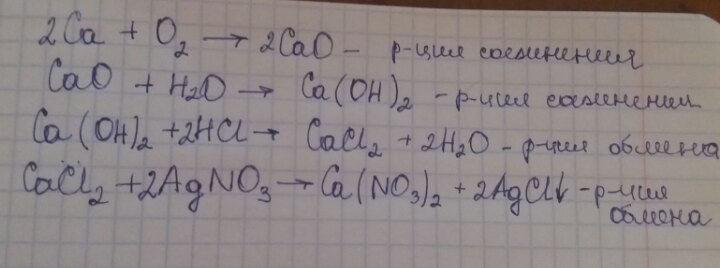 2Ca + O₂ → 2CaO - р-ция соединения
CaO + H₂O → Ca(OH)₂ - р-ция соединения
Ca(OH)₂ + 2HCl → CaCl₂ + 2H₂O - р-ция обмена
CaCl₂ + 2AgNO₃ → Ca(NO₃)₂ + 2AgCl↓ - р-ция
обмена